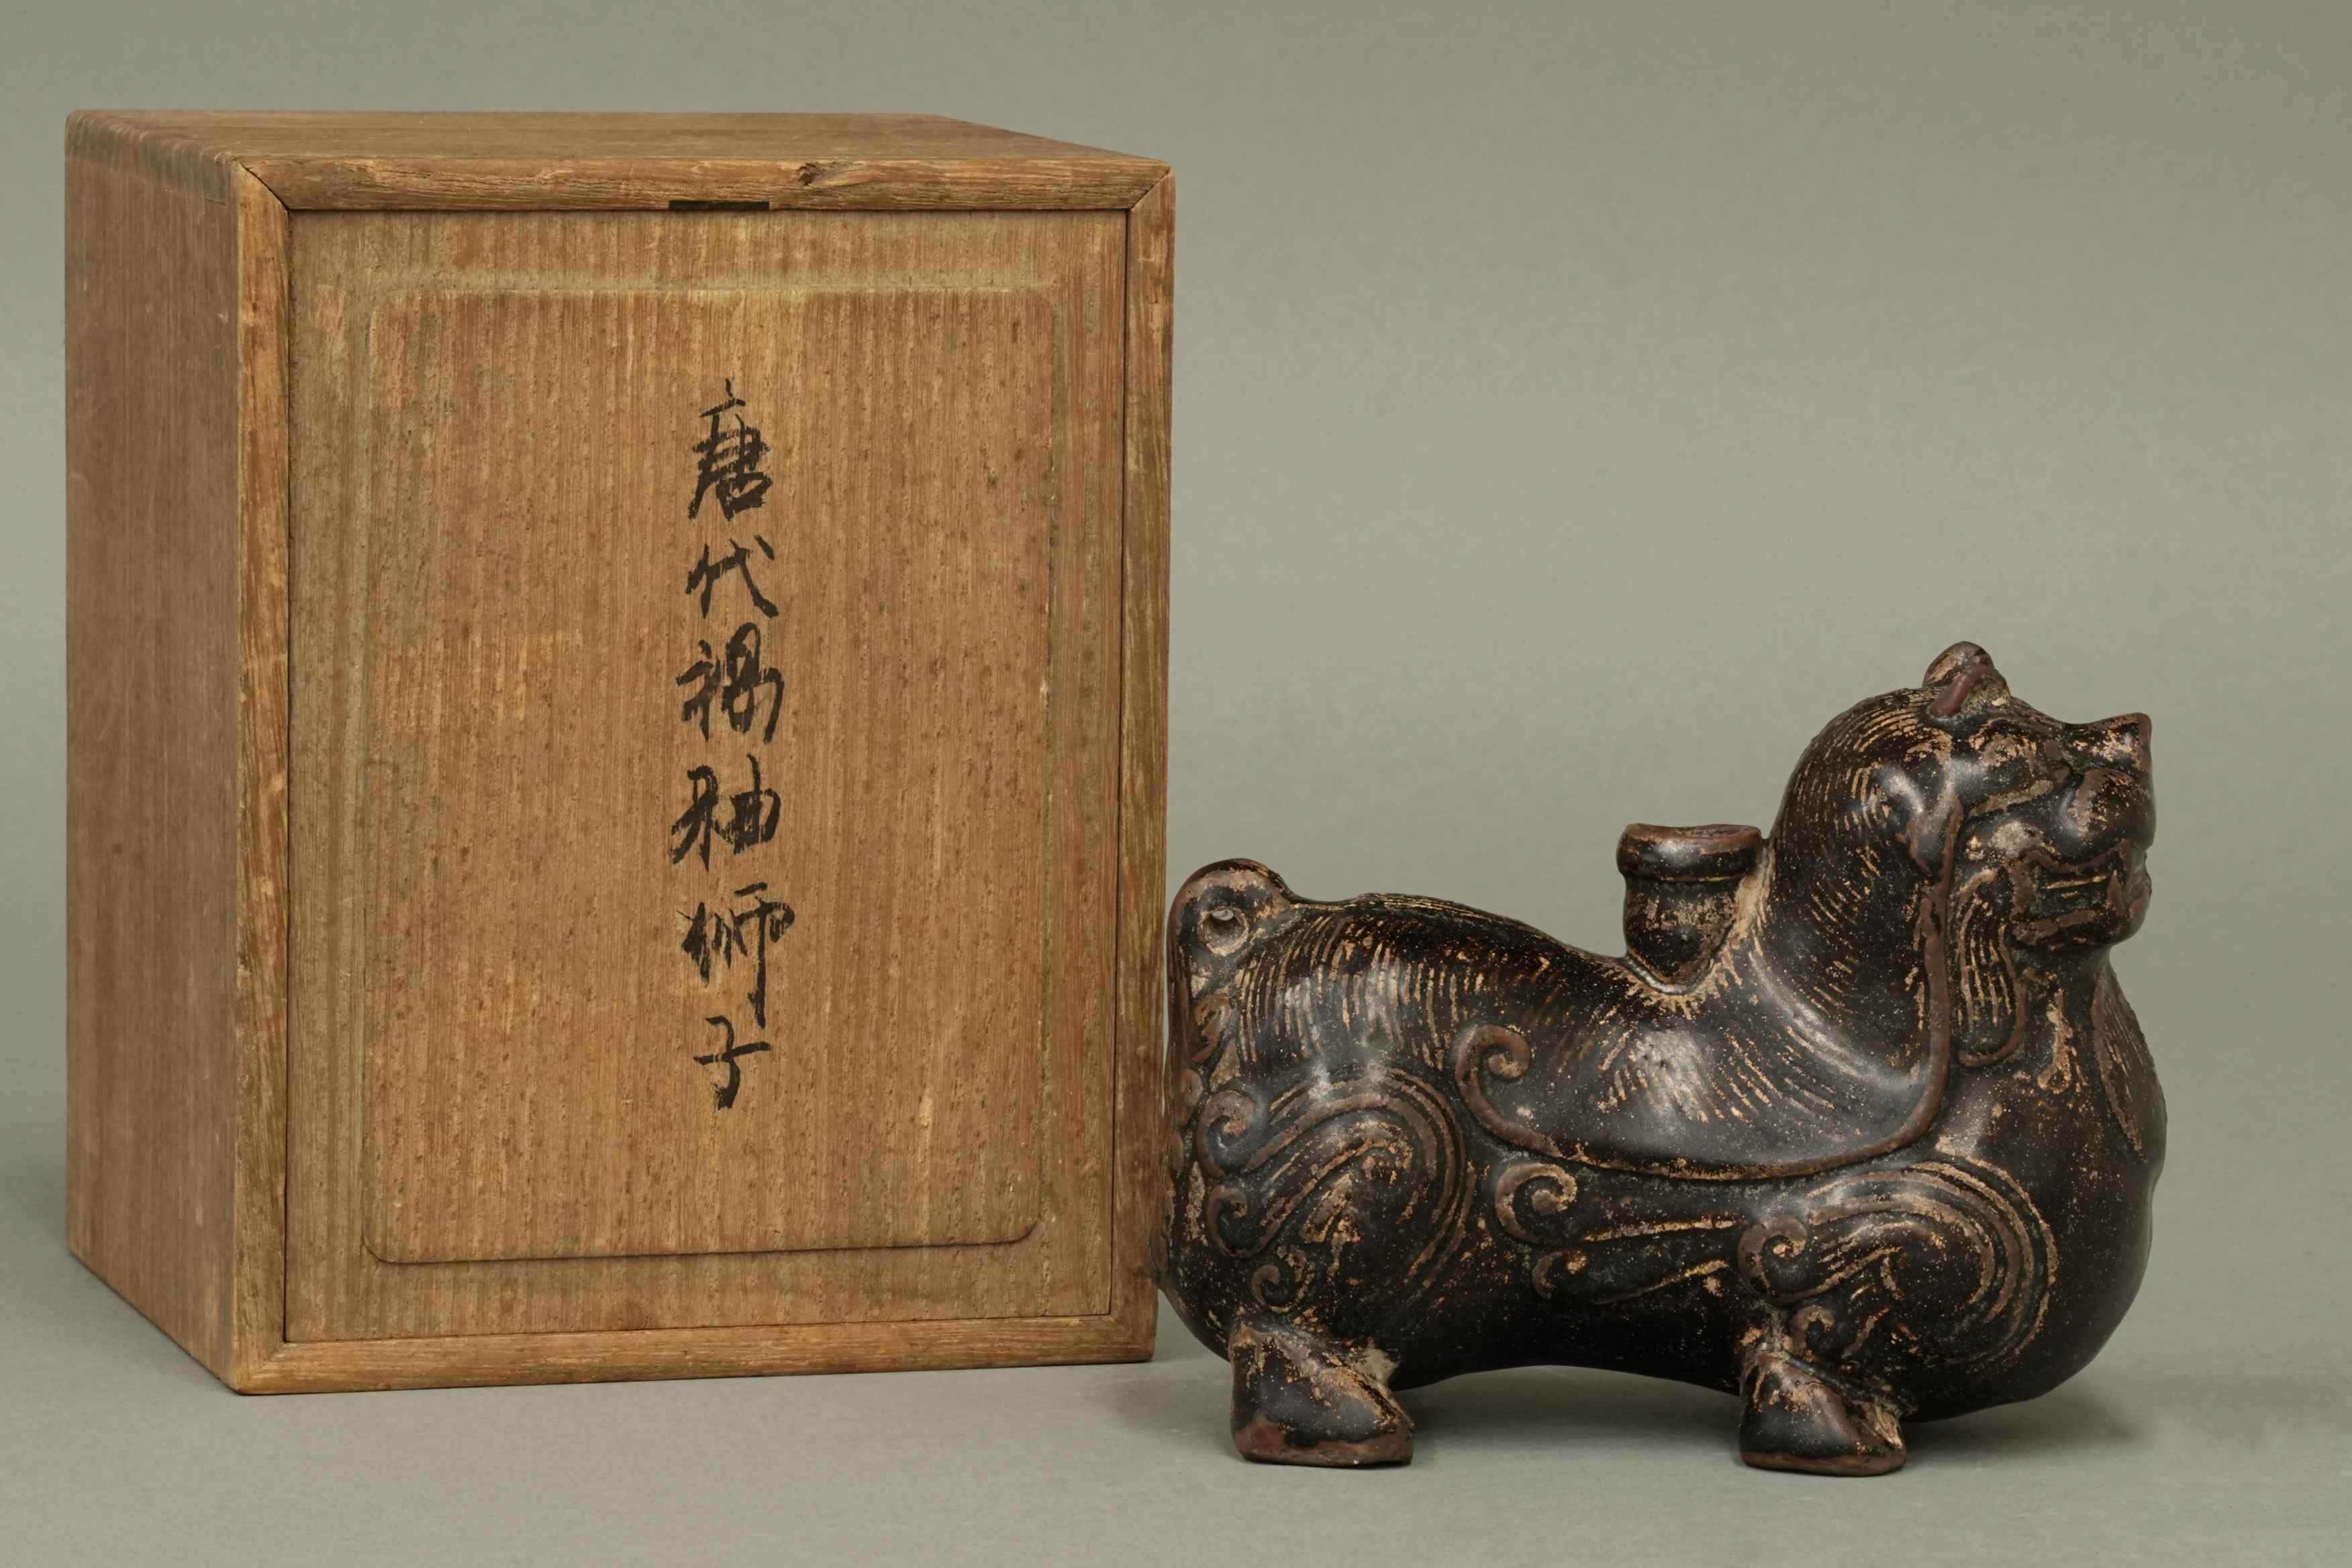 唐代褐釉獅子